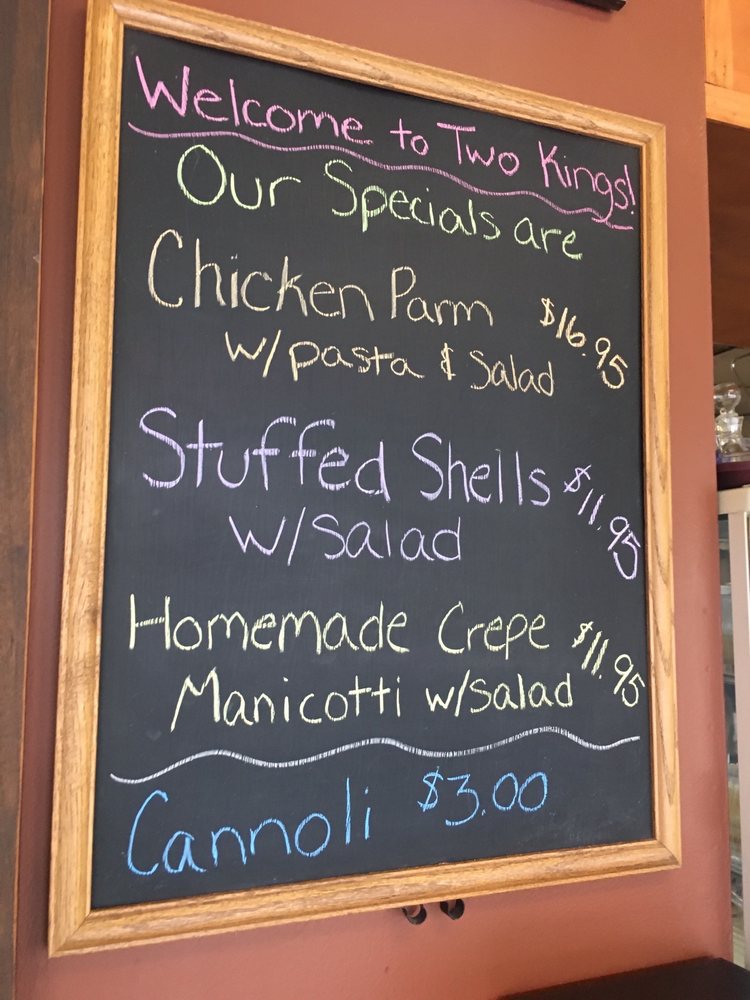 Welcome to Two Kings!
Our Specials are
Chicken Parm $16.95
w/pasta & Salad
Stuffed Shells $11.95
w/Salad
Homemade Crepe $11.95
Manicotti w/Salad
Cannoli $3.00